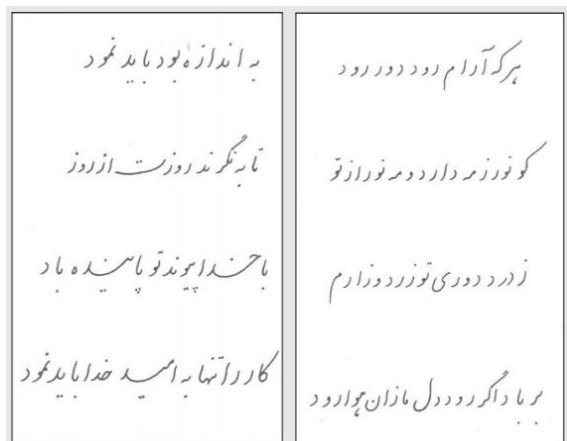 هر که آرام رود دور رود
کو نور ز مه دارد و مه نور از تو
ز درد دوری تو زرد و زارم
بر باد اگر رود دل ما زان هوا رود
به اندازهٔ بود باید نمود
تا به نگرند روزت از روز
با خدا پیوند تو پاینده باد
کار را تنها به امید خدا باید نمود